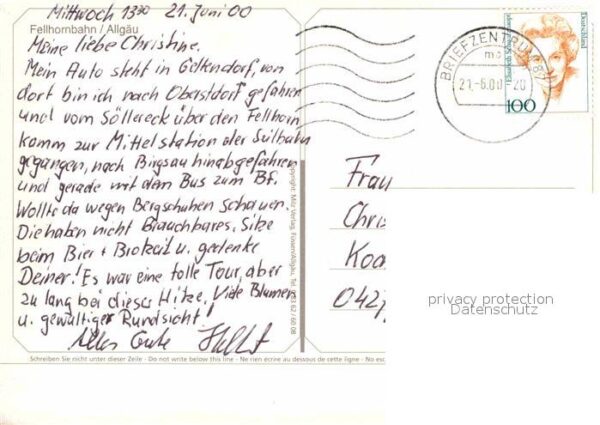 Mittwoch 13³⁰ 21. Juni 00
Fellhornbahn / Allgäu
Meine liebe Christine.
Mein Auto steht in Geltendorf, von
dort bin ich nach Oberstdorf gefahren
und vom Söllereck über den Fellhorn
kamm zur Mittelstation der Seilbahn
gegangen, nach Birgsau hinabgefahren
und gerade mit dem Bus zum Bf.
Wollte da wegen Bergschuhen schauen.
Die haben nicht Brauchbares. Sitze
beim Bier + Brotzeit u. gedenke
Deiner! Es war eine tolle Tour, aber
zu lang bei dieser Hitze, Viele Blumen
u. gewaltiger Rundsicht!
Alles Gute
Schreiben Sie nicht unter dieser Zeile - Do not write below this line - Ne rien écrire au dessous de cette ligne - No esc
Copyright Milz Verlag, Füssen/Allgäu, Tel. 0 83 62 / 60 08
BRIEFZENTRUM 82
mc
21.-6.00-20
Deutschland
100
Frau
Chris
Koa
042
privacy protection
Datenschutz